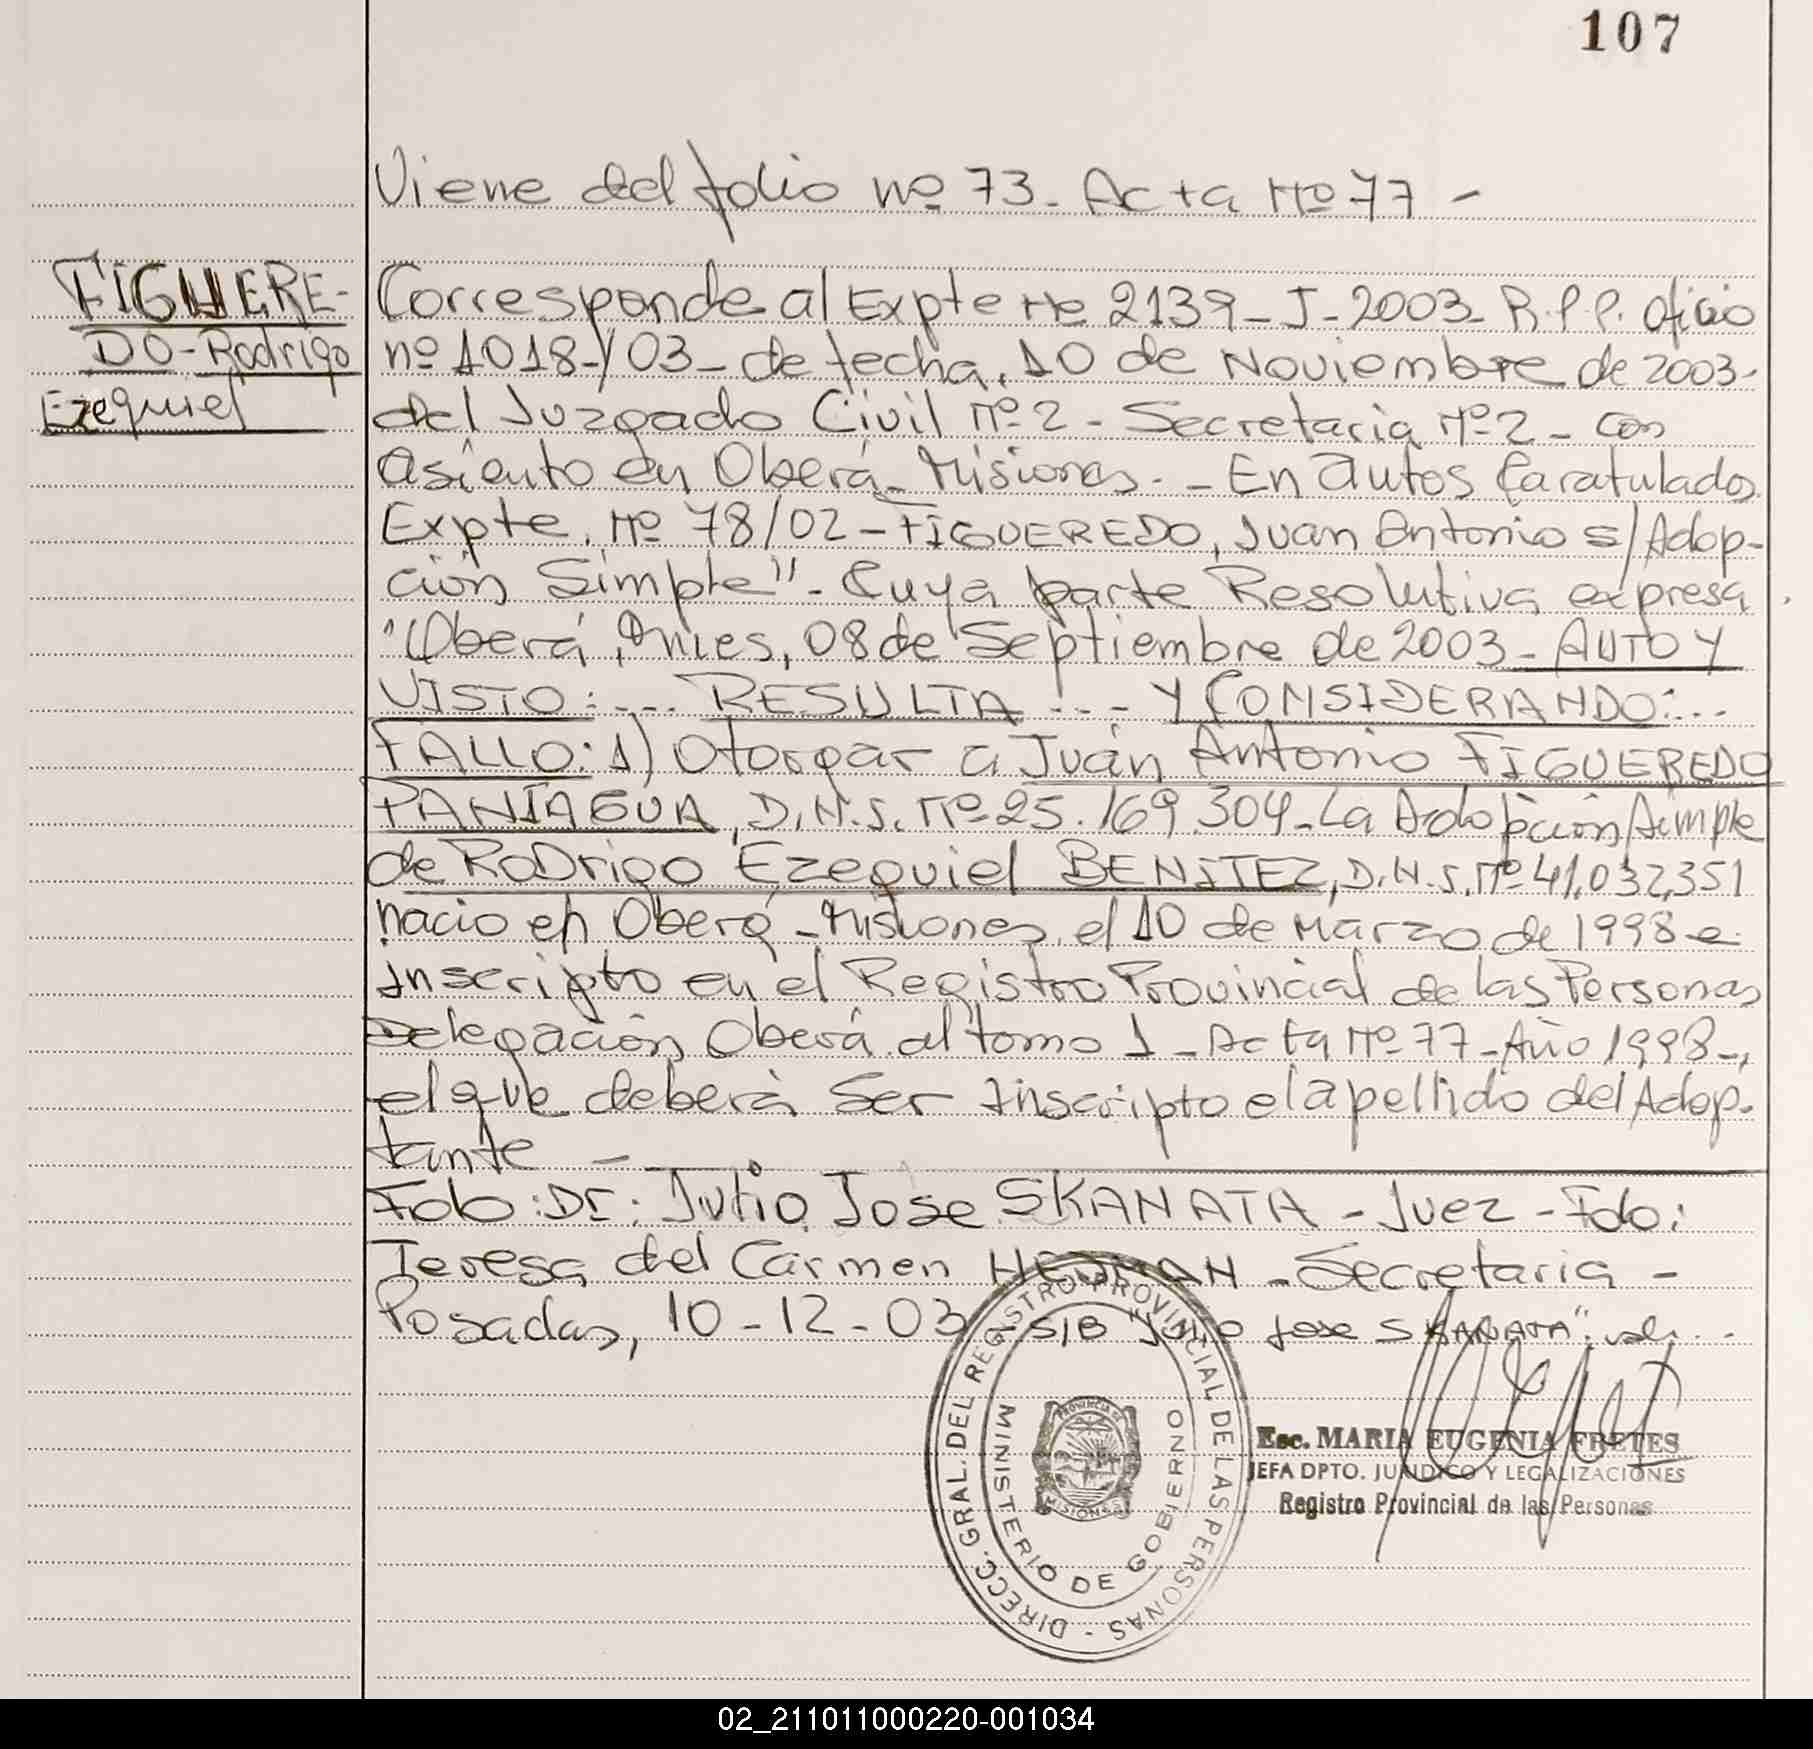 107
Viene del folio nº 73. Acta Nº 77 -
FIGUERE-
DO - Rodrigo
Ezequiel
Corresponde al Expte Nº 2139 - J - 2003 - R.P.P. Oficio
nº 1018-/03 - de fecha, 10 de Noviembre de 2003-
del Juzgado Civil Nº 2 - Secretaria Nº 2 - con
asiento en Oberá - Misiones. - En autos Caratulados
Expte. Nº 78/02 - FIGUEREDO, Juan Antonio s/Adop-
ción Simple" - Cuya parte Resolutiva expresa
"Oberá, Mnes, 08 de Septiembre de 2003 - AUTO Y
VISTO: ... RESULTA ... - Y CONSIDERANDO: ...
FALLO: 1) Otorgar a Juan Antonio FIGUEREDO
PANIAGUA, D.N.I. Nº 25.169.304 - La Adopción Simple
de RoDrigo Ezequiel BENITEZ, D.N.I. Nº 41.032,351
nacio en Oberá - Misiones, el 10 de Marzo de 1998 e
inscripto en el Registro Provincial de las Personas
Delegación Oberá al tomo 1 - Acta Nº 77 - Año 1998 -,
el que deberá Ser Inscripto el apellido del Adop-
tante -
Fdo: Dr: Julio Jose SKANATA - Juez - Fdo:
Teresa del Carmen HEDMAN - Secretaria -
Posadas, 10 - 12 - 03 - S/B "Julio Jose SKANATA": vale. -
DIRECC. GRAL. DEL REGISTRO PROVINCIAL DE LAS PERSONAS -
MINISTERIO DE GOBIERNO
PROVINCIA DE
MISIONES
Esc. MARIA EUGENIA FRETES
JEFA DPTO. JURIDICO Y LEGALIZACIONES
Registro Provincial de las Personas
02_211011000220-001034